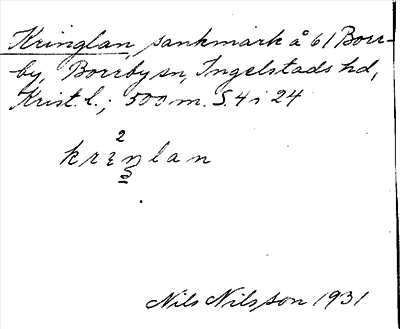 Kringlan, sankmark å 61 Borr-
by, Borrby sn, Ingelstads hd,
Krist. l.; 500 m. S. 4 i 24
2
krɪŋlan
Nils Nilsson 1931